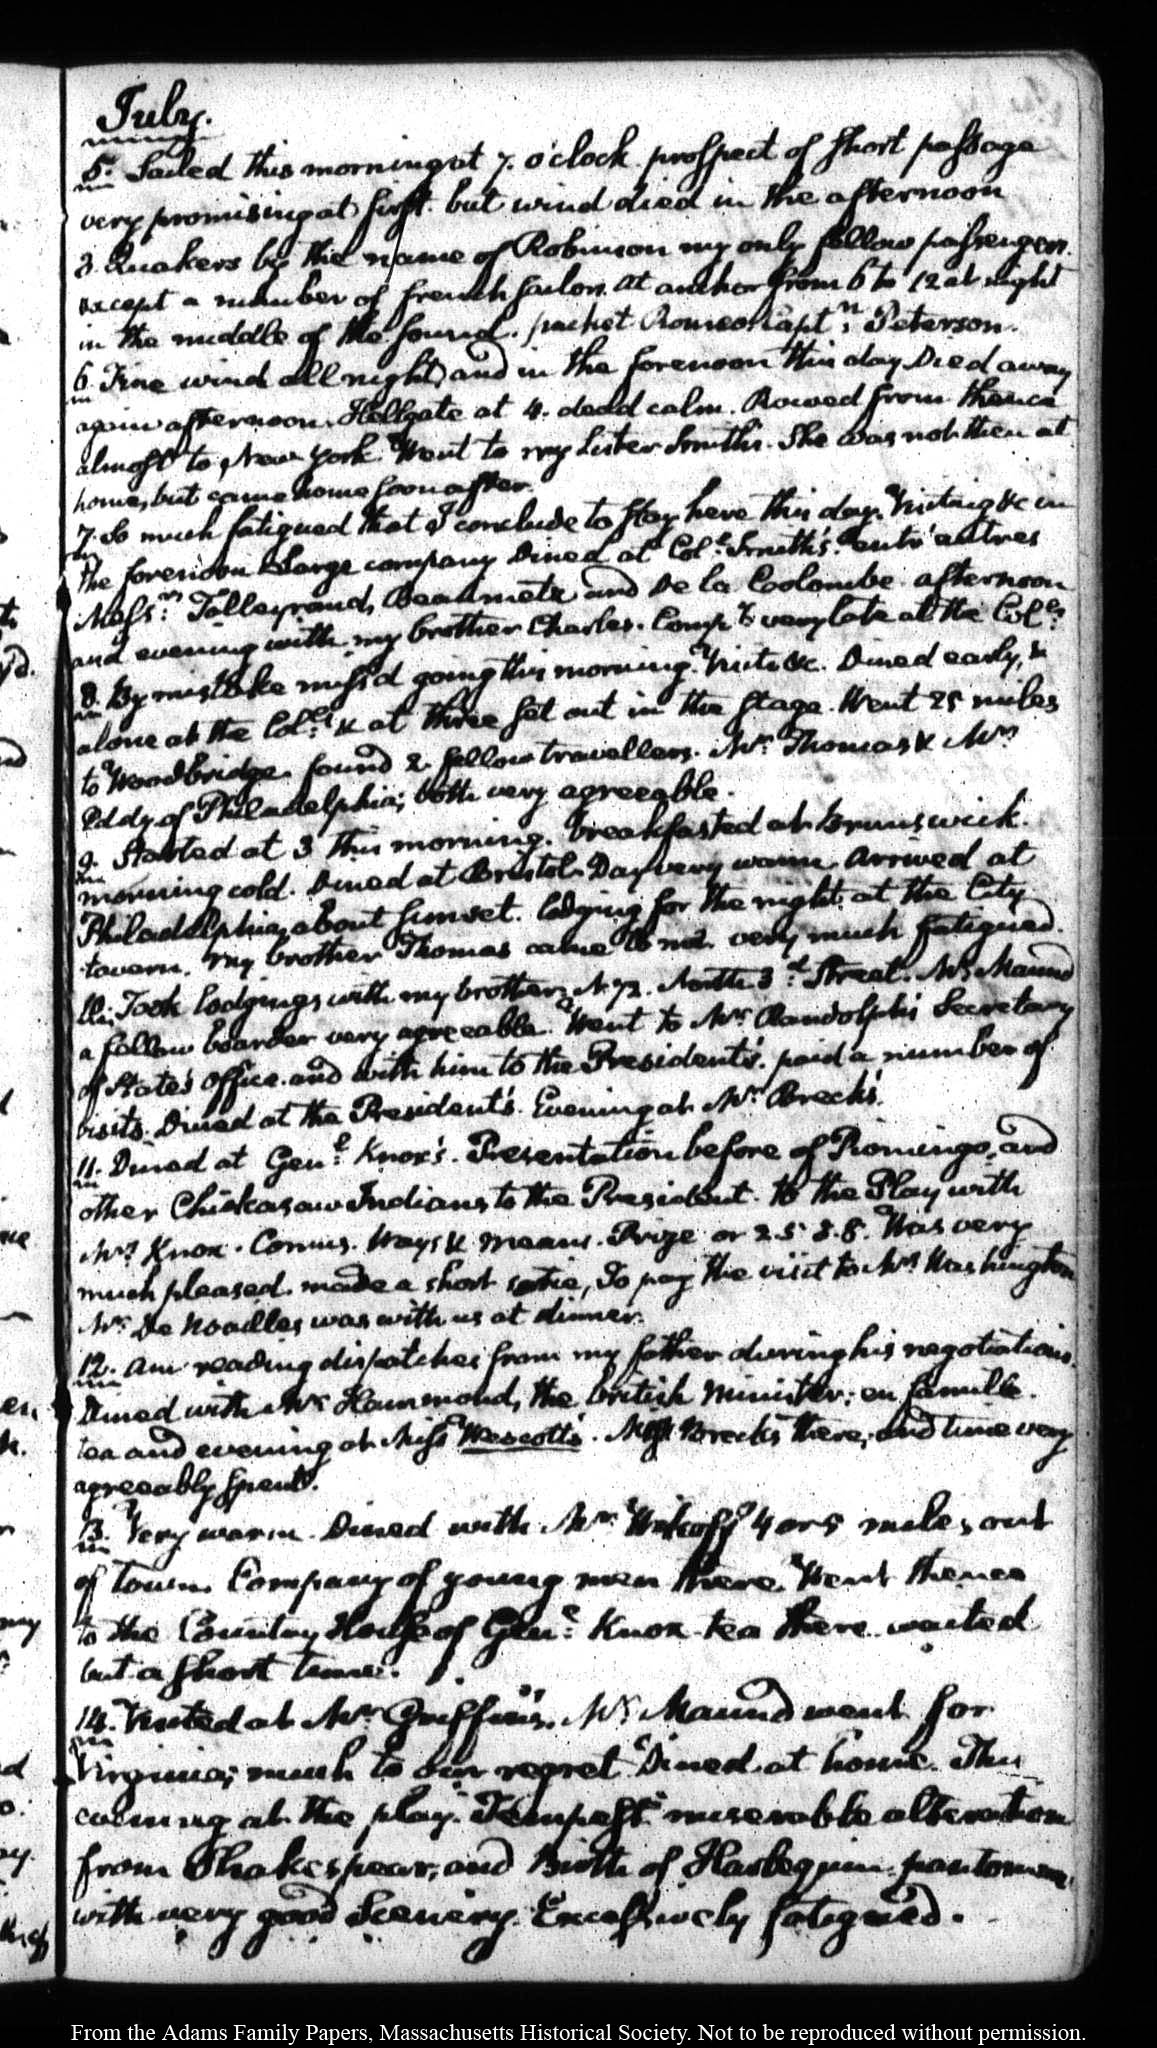 July.
5. Sailed this morning at 7. o'clock. prospect of short passage
very promising at first. but wind died in the afternoon
3. Quakers by the name of Robinson my only fellow passengers.
except a number of french sailors. At anchor from 6 to 12 at night
in the middle of the sound. packet Romeo Captn: Peterson.
6. Fine wind all night, and in the forenoon this day Died away
again afternoon. Hellgate at 4. dead calm. Rowed from thence
almost to New York. Went to my Sister Smith's. She was not then at
home, but came home soon after.
7. So much fatigued that I conclude to stay here this day. Visiting &c in
the forenoon Large company Dined at Coll: Smith's. entr'autres
Messrs: Talleyrand, Beaumetz and De la Coolombe. afternoon
and evening with my brother Charles. Compy: very late at the Colls:
8. By mistake miss'd going this morning. Visits &c. Dined early, &
alone at the Colls: & at three set out in the Stage. Went 25 miles
to Woodbridge. found 2 fellow travellers. Mr: Thomas & Mr:
Eddy of Philadelphia; both very agreeable.
9. Started at 3 this morning. breakfasted at Brunswick.
morning cold. Dined at Bristol. Day very warm. Arrived at
Philadelphia, about sunset. lodging for the night at the City
tavern. My brother Thomas came to me. very much fatigued.
10. Took lodgings with my brother, N. 72. North 3d: Street. Mr: Maund
a fellow boarder very agreeable. Went to Mr: Randolph's Secretary
of State's office. and with him to the President's. paid a number of
visits. Dined at the President's. Evening at Mr: Breck's.
11. Dined at Genl: Knox's. Presentation before of Piomingo, and
other Chickasaw Indians to the President. to the Play with
Mrs: Knox. Comus. Ways & Means. Prize or 2. 5. 3. 8. Was very
much pleased. made a short sortie, To pay the visit to Mrs: Washington
Mr: De Noailles was with us at dinner.
12. Am reading dispatches from my father during his negotiations.
Dined with Mr: Hammond, the british Minister; en famille.
tea and evening at Miss Wescott's. Breck's there, and time very
agreeably spent.
13. Very warm. Dined with Mr: Wikoff 4 or 5 miles out
of town. Company of young men there. Went thence
to the Country House of Genl: Knox. tea there. waited
but a short time.
14. Visited at Mr: Griffin's. Mr: Maund went for
Virginia; much to our regret. Dined at home. This
evening at the play. Tempest. miserable alteration
from Shakespear, and Birth of Harlequin. pantomime,
with very good Scenery. Excessively fatigued.
From the Adams Family Papers, Massachusetts Historical Society. Not to be reproduced without permission.